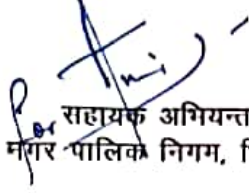 for सहायक अभियन्त
नगर पालिक निगम, f